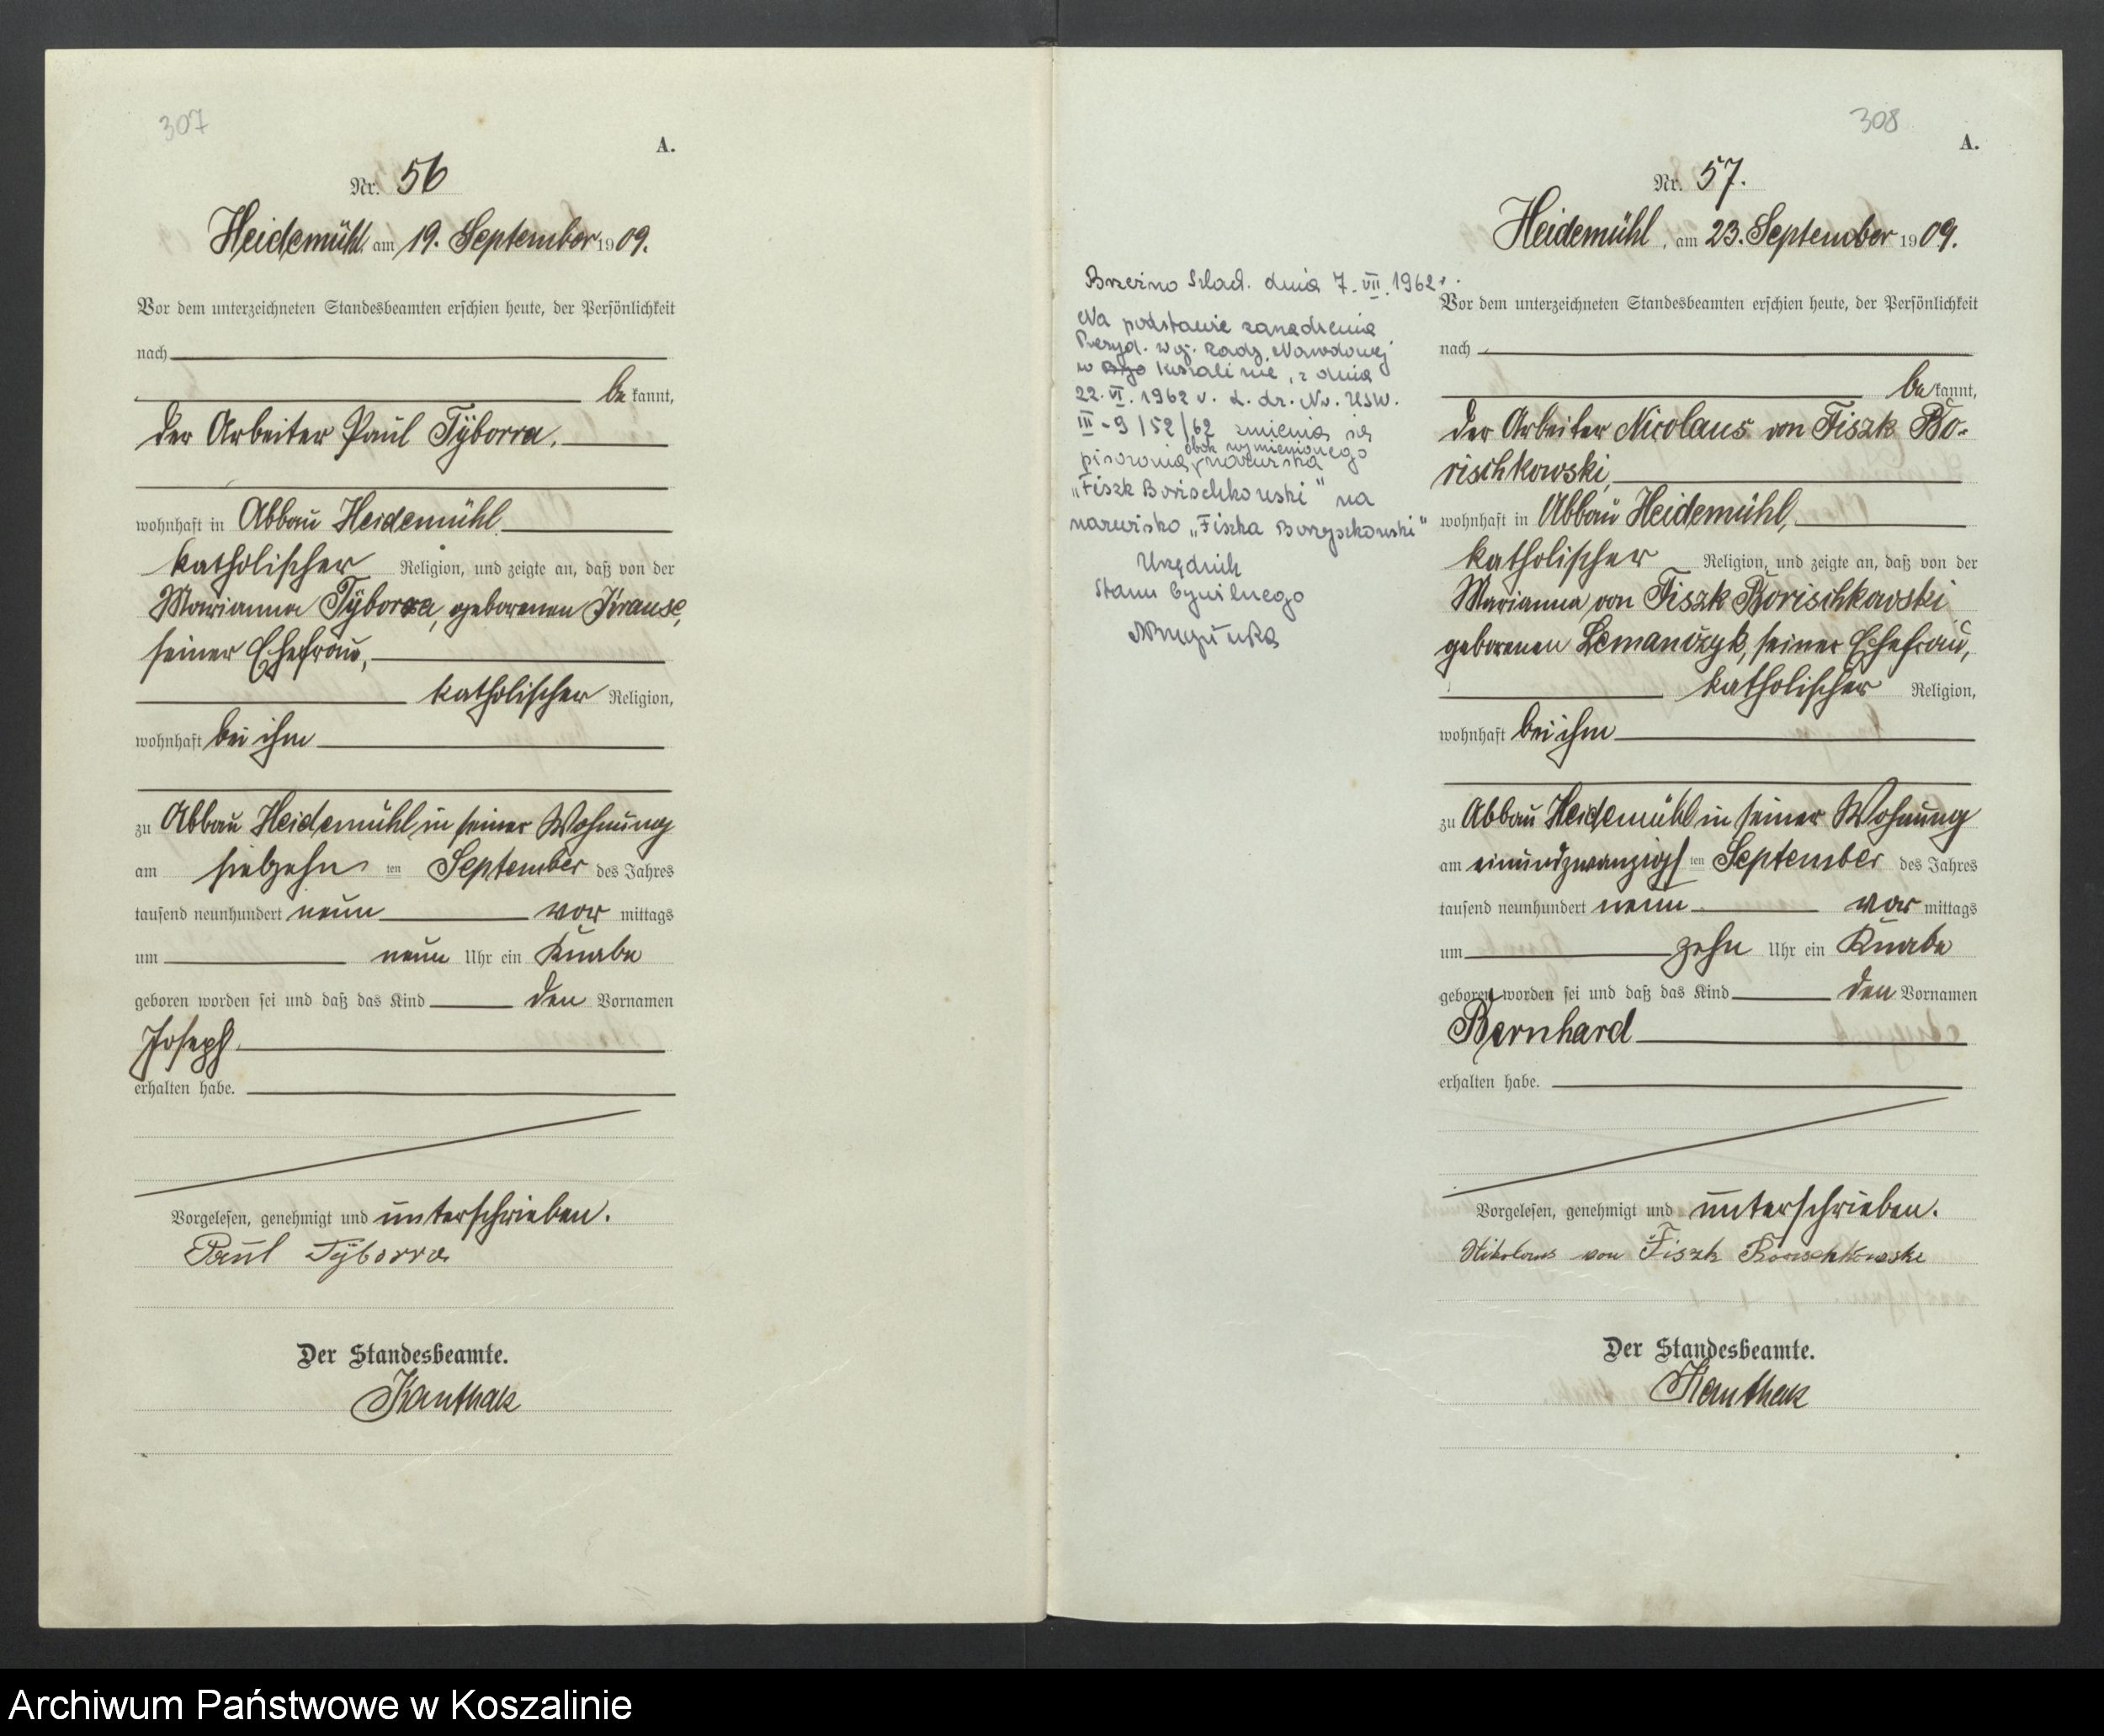 307
A.
Nr. 56
Heidemühl am 19. September 1909.
Vor dem unterzeichneten Standesbeamten erschien heute, der Persönlichkeit
nach
bekannt,
der Arbeiter Paul Tyborra,
wohnhaft in Abbau Heidemühl
katholischer Religion, und zeigte an, daß von der
Marianna Tyborra, geborenen Krause,
seiner Ehefrau,
katholischer Religion,
wohnhaft bei ihm
zu Abbau Heidemühl in seiner Wohnung
am siebzehnten September des Jahres
tausend neunhundert neun vormittags
um neun Uhr ein Knabe
geboren worden sei und daß das Kind den Vornamen
Joseph
erhalten habe.
Vorgelesen, genehmigt und unterschrieben.
Paul Tyborra
Der Standesbeamte.
Kanthak
308
A.
Nr. 57.
Heidemühl, am 23. September 1909.
Brzeźno Szlach. dnia 7. VII. 1962 r.
Na podstawie zarządzenia
Prezyd. Woj. Rady Narodowej
w Koszalinie, z dnia
22. VI. 1962 r. L. dz. Nr. USW.
III-9/52/62 zmienia się
obok wymienionego
pisownię nazwiska
"Fiszk Borischkowski" na
nazwisko "Fiszka Borzyszkowski"
Urzędnik
Stanu Cywilnego
Vor dem unterzeichneten Standesbeamten erschien heute, der Persönlichkeit
nach
bekannt,
der Arbeiter Nicolaus von Fiszk Bo-
rischkowski,
wohnhaft in Abbau Heidemühl,
katholischer Religion, und zeigte an, daß von der
Marianna von Fiszk Borischkowski
geborenen Lemanczyk, seiner Ehefrau,
katholischer Religion,
wohnhaft bei ihm
zu Abbau Heidemühl in seiner Wohnung
am einundzwanzigsten September des Jahres
tausend neunhundert neun vormittags
um zehn Uhr ein Knabe
geboren worden sei und daß das Kind den Vornamen
Bernhard
erhalten habe.
Vorgelesen, genehmigt und unterschrieben.
Nikolaus von Fiszk Borischkowski
Der Standesbeamte.
Kanthak
Archiwum Państwowe w Koszalinie